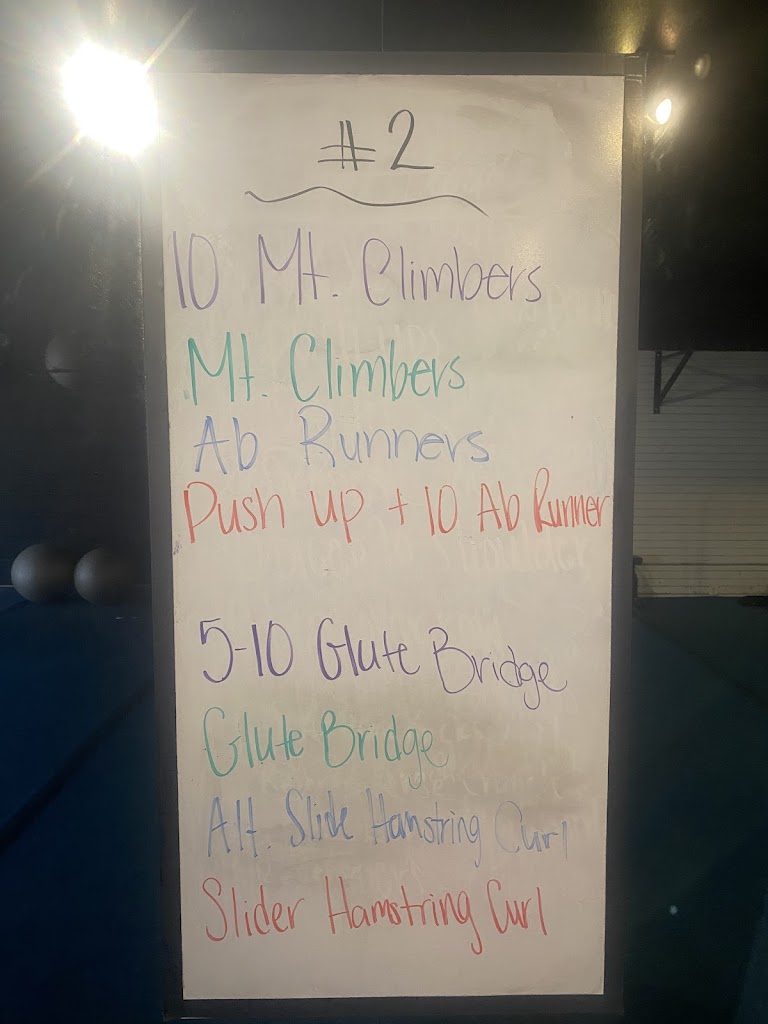 #2
10 Mt. Climbers
Mt. Climbers
Ab Runners
Push up + 10 Ab Runner
5-10 Glute Bridge
Glute Bridge
Alt. Slide Hamstring Curl
Slider Hamstring Curl